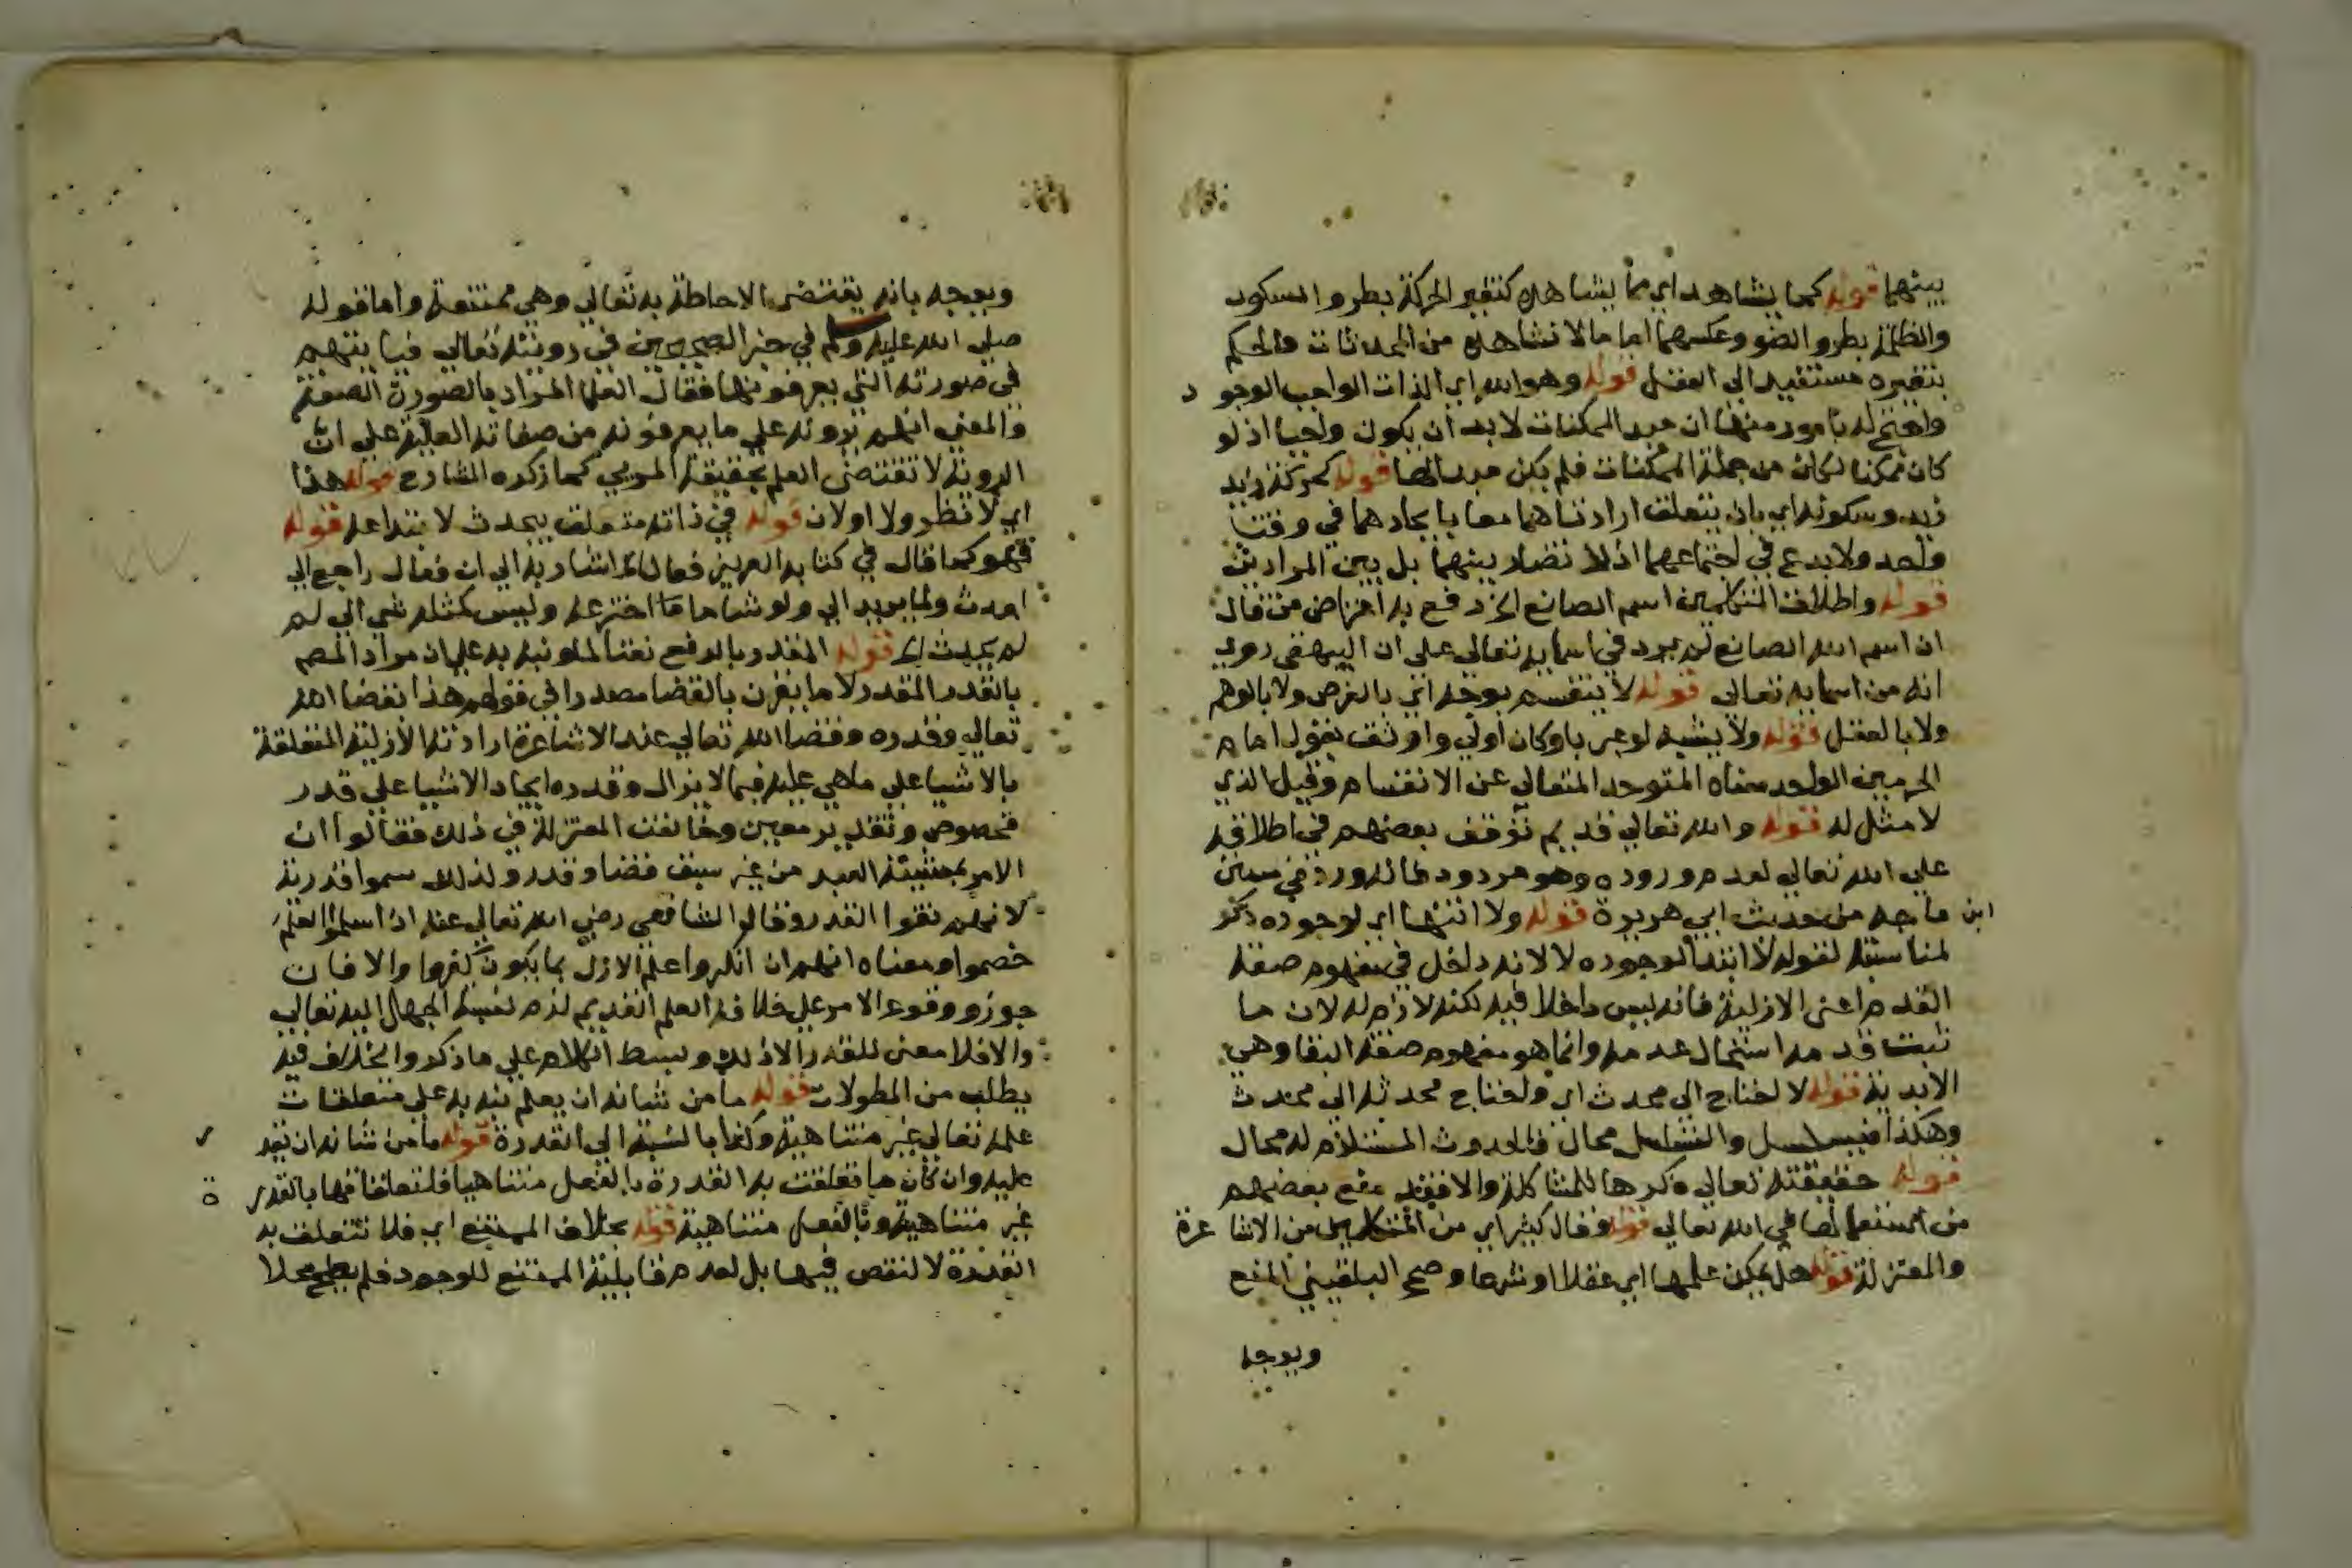 بينهما قوله كما يشاهد اي مما يشاهد كتغير الحركة بطرو السكون
والظلمة بطرو الضو وعكسهما اما ما لا نشاهد من المحدثات فالحكم
بتغيره مستفيد الى العقل قوله وهو الله اي الذات الواجب الوجود
واحتج له بامور منها ان مبدا الممكنات لا بد ان يكون واجبا اذ لو
كان ممكنا لكان من جملة الممكنات فلم يكن مبدا لها قوله كحركة زيد
زيد وسكونه اي بان يتعلق ارادتاهما معا بايجادهما في وقت
واحد ولا بدع في اجتماعهما اذ لا تضاد بينهما بل بين المرادين
قوله واطلاق المتكلمين اسم الصانع الخ دفع به اعتراض من قال
ان اسم الله الصانع لم يرد في اسمايه تعالى على ان البيهقي روى
انه من اسمايه تعالى قوله لا ينقسم بوجه اي بالفرض ولا بالوهم
ولا بالعقل قوله ولا يشبه لو عبر باو كان اولى واوفق بقول امام
الحرمين الواحد معناه المتوحد المتعالي عن الانقسام وقيل الذي
لا مثل له قوله والله تعالى قديم توقف بعضهم في اطلاقه
على الله تعالى لعدم وروده وهو مردود فانه ورد في سنن
ابن ماجه من حديث ابي هريرة قوله ولا انتها اي لوجوده ذكر
لمناسبة لقوله لا ابتدا لوجوده لا لانه داخل في مفهوم صفة
القدم اعني الازلية فانه ليس داخلا فيه لكنه لازم له لان ما
ثبت قدمه استحال عدمه وانما هو مفهوم صفة البقا وهي
الابدية قوله لاحتاج الى محدث اي واحتاج محدثه الى محدث
وهكذا فيتسلسل والتسلسل محال فالحدوث المستلزم له محال
قوله حقيقته تعالى ذكرها للمشاكلة والا فقد منع بعضهم
من استعمالها في الله تعالى قوله وقال كثير اي من المتكلمين من الاشاعرة
والمعتزلة قوله هل يمكن علمها اي عقلا او شرعا وصح البلقيني المنع
ويوجه
ويوجه بانه يقتضي الاحاطة به تعالى وهي ممتنعة واما قوله
صلى الله عليه وسلم في خبر الصحيحين في رويته تعالى فياتيهم
في صورته التي يعرفونها فقال العلما المراد بالصورة الصفة
والمعنى انهم يرونه على ما يعرفونه من صفاته العلية على ان
الروية لا تقتضي العلم بحقيقة المريي كما ذكره الشارح قوله هذا
اي لا نظر ولا اولان قوله في ذاته متعلق بيحدث لا بابتداعه قوله
فهو كما قال في كتابه العزيز فعال الخ اشار به الى ان فعال راجع الى
احدث ولما يريد الى ولو شا ما اخترعه وليس كمثله شي الى لم
لم يحدث الخ قوله المقدر بالرفع نعتا لما ونبه به على ان مراد المصم
بالقدر المقدر لا ما يقرن بالقضا مصدرا في قولهم هذا بقضا الله
تعالى وقدره وقضا الله تعالى عند الاشاعرة ارادته الازلية المتعلقة
بالاشيا على ما هي عليه فيما لا يزال وقدره ايجاد الاشيا على قدر
مخصوص وتقدير معين وخالفت المعتزلة في ذلك فقالوا ان
الامر بمشيئة العبد من غير سبق قضا وقدر ولذلك سموا قدرية
لانهم نفوا القدر وقال الشافعي رضي الله تعالى عنه اذا سلموا العلم
خصموا ومعناه انهم ان انكروا علم الازل بما يكون كفروا والا فان
جوزو وقوع الامر على خلاف العلم القديم لزم نسبة الجهل اليه تعالى
والا فلا معنى للقدر الا ذلك وبسط الكلام على ما ذكر والخلاف فيه
يطلب من المطولات قوله ما من شانه ان يعلم نبه به على متعلقات
علمه تعالى غير متناهية وكذا بالنسبة الى القدرة قوله ما من شانه ان يقدر
عليه وان كان ما تعلقت به القدرة بالفعل متناهيا فلتعلقاتها بالقوة
غير متناهية وبالفعل متناهية قوله بخلاف الممتنع اي فلا تتعلق به
القدرة لا لنقص فيها بل لعدم قابلية الممتنع للوجود فلم يصلح محلا